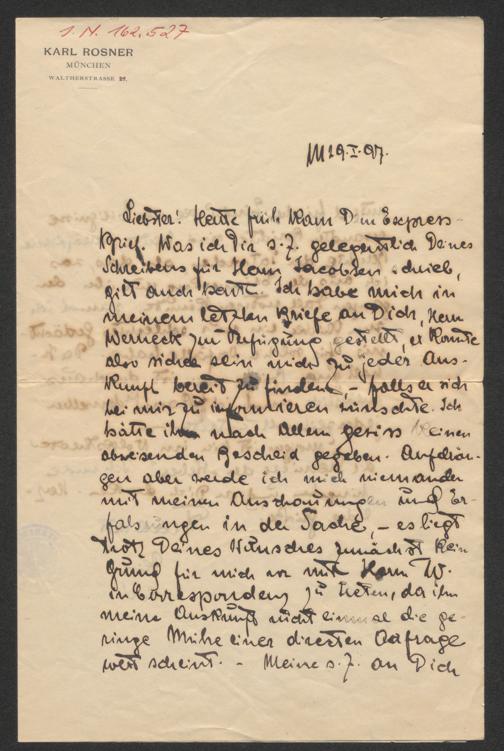 I. N. 162.527
KARL ROSNER
MÜNCHEN
WALTHERSTRASSE 27.
M 19.I.07.
Liebster! Heute früh kam Dein Express-
Brief. Was ich Dir s. Z. gelegentlich Deines
Schreibens für Herrn Jacobsen schrieb,
gilt auch heute. Ich habe mich in
meinem letzten Briefe an Dich, Herrn
Werneck zur Verfügung gestellt, er konnte
also sicher sein mich zu jeder Aus-
kunft bereit zu finden, – falls er sich
bei mir zu informieren wünschte. Ich
hätte ihm nach Allem gewiss keinen
abweisenden Bescheid gegeben. Aufdrän-
gen aber werde ich mich niemandem
mit meinen Anschauungen und Er-
fahrungen in der Sache, – es liegt
trotz Deines Wunsches zunächst kein
Grund für mich vor mit Herrn W.
in Correspondenz zu treten, da ihm
meine Auskunft nicht einmal die ge-
ringe Mühe einer directen Anfrage
wert scheint. – Meine s. Z. an Dich